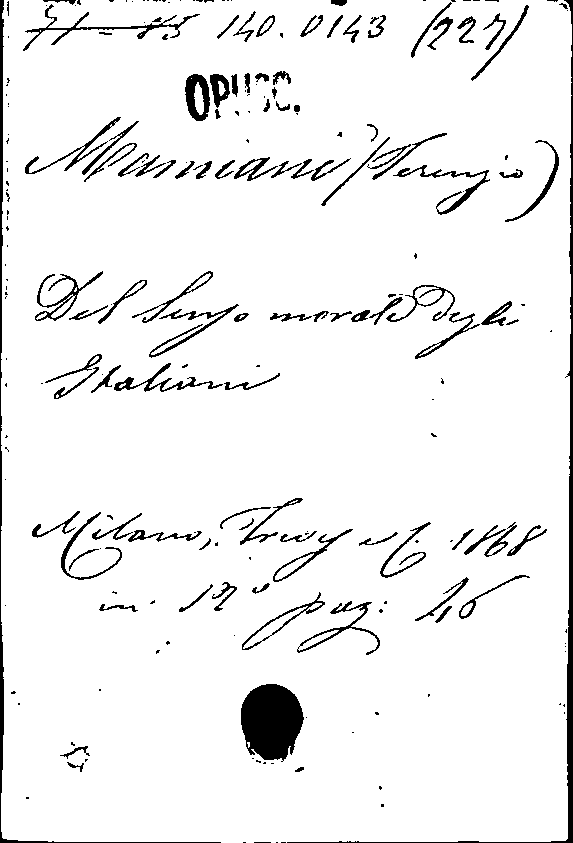 71 - 85 140.0143 (227)
OPUSC.
Mamiani (Terenzio)
Del Senso morale degli
Italiani
Milano, Treves e C. 1868
in 12° pag: 46